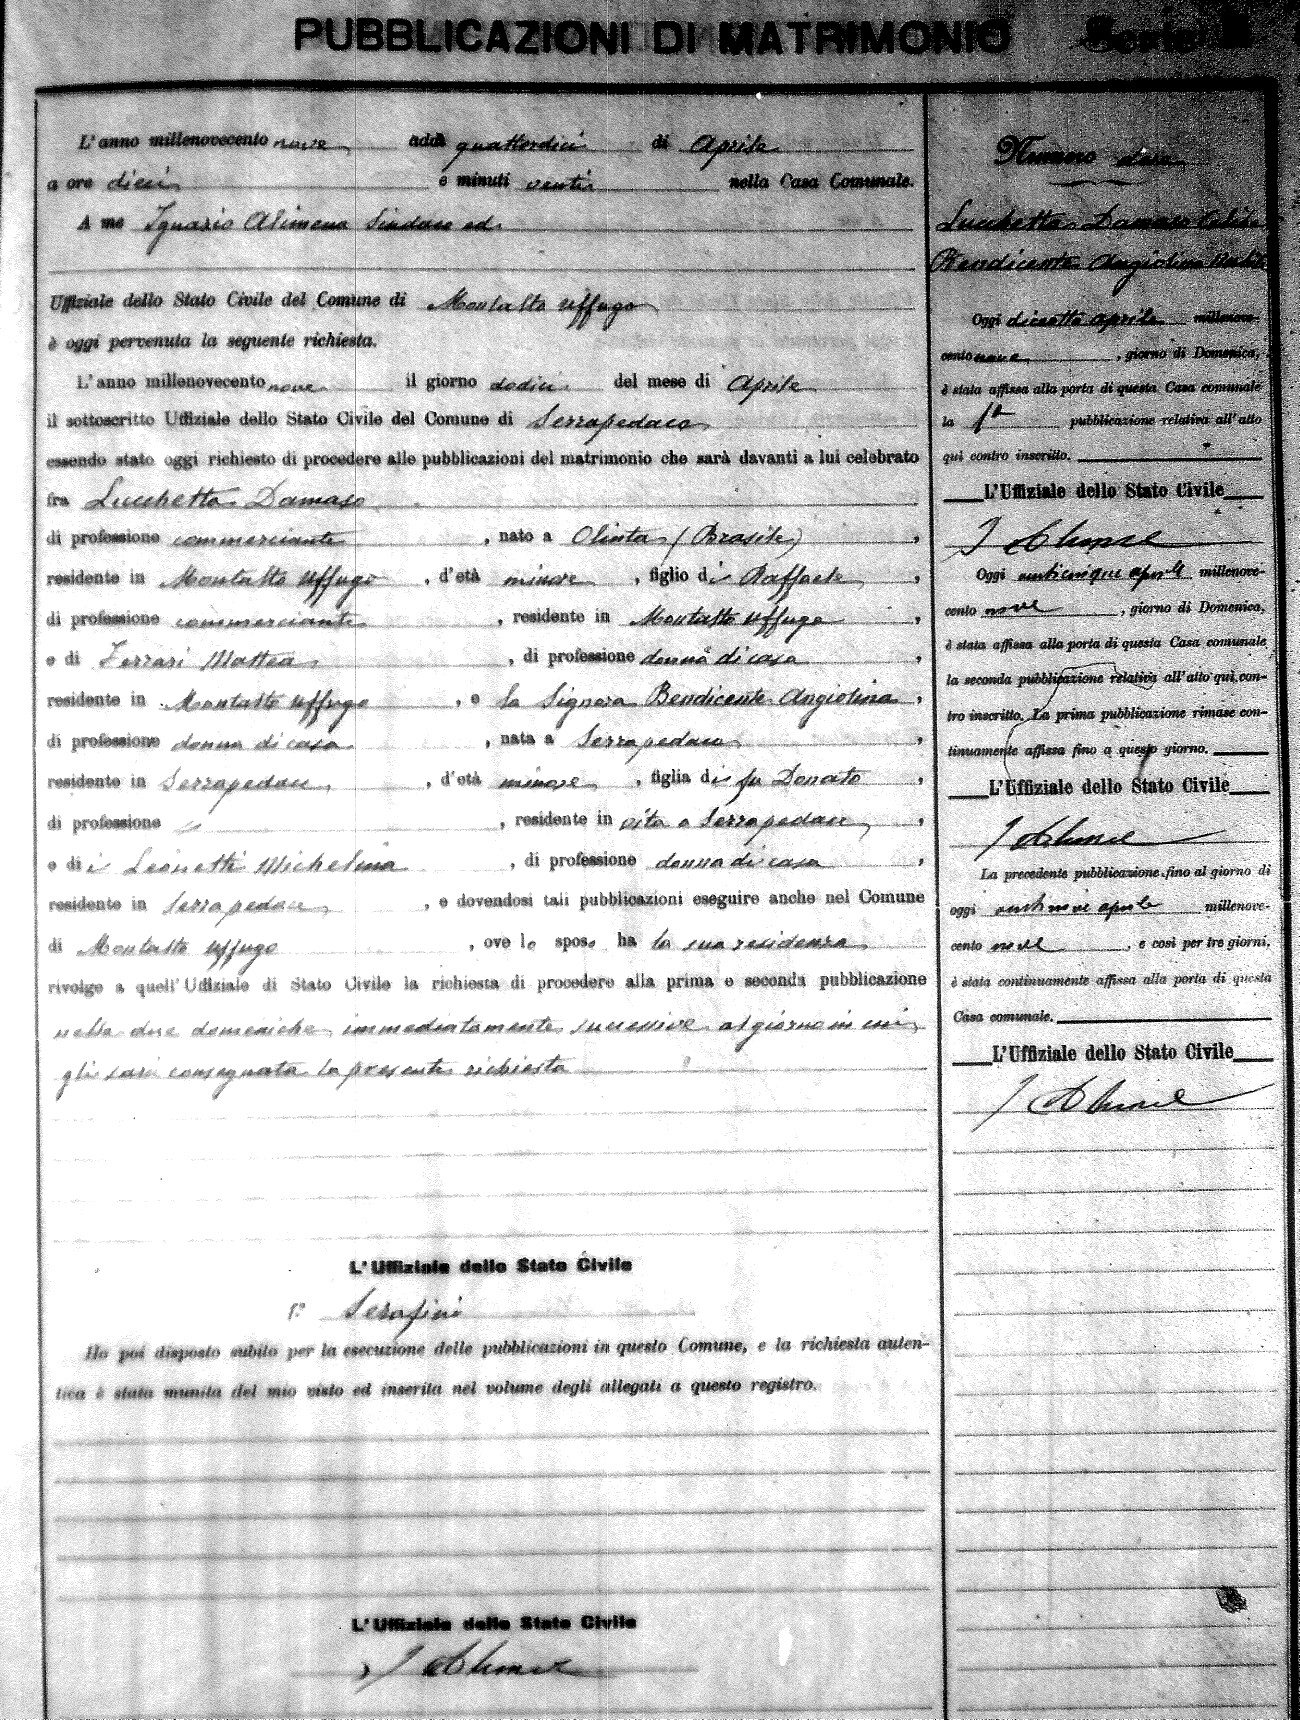 PUBBLICAZIONI DI MATRIMONIO Serie
L'anno millenovecento nove addì quattordici di Aprile
a ore dieci e minuti venti nella Casa Comunale.
A me Ignazio Alimena Sindaco ed
Uffiziale dello Stato Civile del Comune di Montalto Uffugo
è oggi pervenuta la seguente richiesta.
L'anno millenovecento nove il giorno dodici del mese di Aprile
il sottoscritto Uffiziale dello Stato Civile del Comune di Serrapedace
essendo stato oggi richiesto di procedere alle pubblicazioni del matrimonio che sarà davanti a lui celebrato
fra Lucchetta Damaso
di professione commerciante, nato a Olinta (Brasile),
residente in Montalto Uffugo, d'età minore, figlio di Raffaele,
di professione commerciante, residente in Montalto Uffugo,
e di Ferrari Mattea, di professione donna di casa,
residente in Montalto Uffugo, e la Signora Bendicente Angiolina,
di professione donna di casa, nata a Serrapedace,
residente in Serrapedace, d'età minore, figlia di fu Donato,
di professione , residente in vita a Serrapedace,
e di Leonetti Michelina, di professione donna di casa,
residente in Serrapedace, e dovendosi tali pubblicazioni eseguire anche nel Comune
di Montalto Uffugo, ove lo sposo ha la sua residenza
rivolge a quell'Uffiziale di Stato Civile la richiesta di procedere alla prima e seconda pubblicazione
nelle due domeniche immediatamente successive al giorno in cui
gli sarà consegnata la presente richiesta
L'Uffiziale dello Stato Civile
Serafini
Ho poi disposto subito per la esecuzione delle pubblicazioni in questo Comune, e la richiesta auten-
tica è stata munita del mio visto ed inserita nel volume degli allegati a questo registro.
L'Uffiziale dello Stato Civile
I Alimena
Numero
Lucchetta Damaso
Bendicente Angiolina
Oggi diciotto aprile millenove-
cento nove, giorno di Domenica,
è stata affissa alla porta di questa Casa comunale
la 1ª pubblicazione relativa all'atto
qui contro inscritto.
L'Uffiziale dello Stato Civile
I Alimena
Oggi venticinque aprile millenove-
cento nove, giorno di Domenica,
è stata affissa alla porta di questa Casa comunale
la seconda pubblicazione relativa all'atto qui con-
tro inscritto. La prima pubblicazione rimase con-
tinuamente affissa fino a questo giorno.
L'Uffiziale dello Stato Civile
I Alimena
La precedente pubblicazione fino al giorno di
oggi ventinove aprile millenove-
cento nove, e così per tre giorni,
è stata continuamente affissa alla porta di questa
Casa comunale.
L'Uffiziale dello Stato Civile
I Alimena